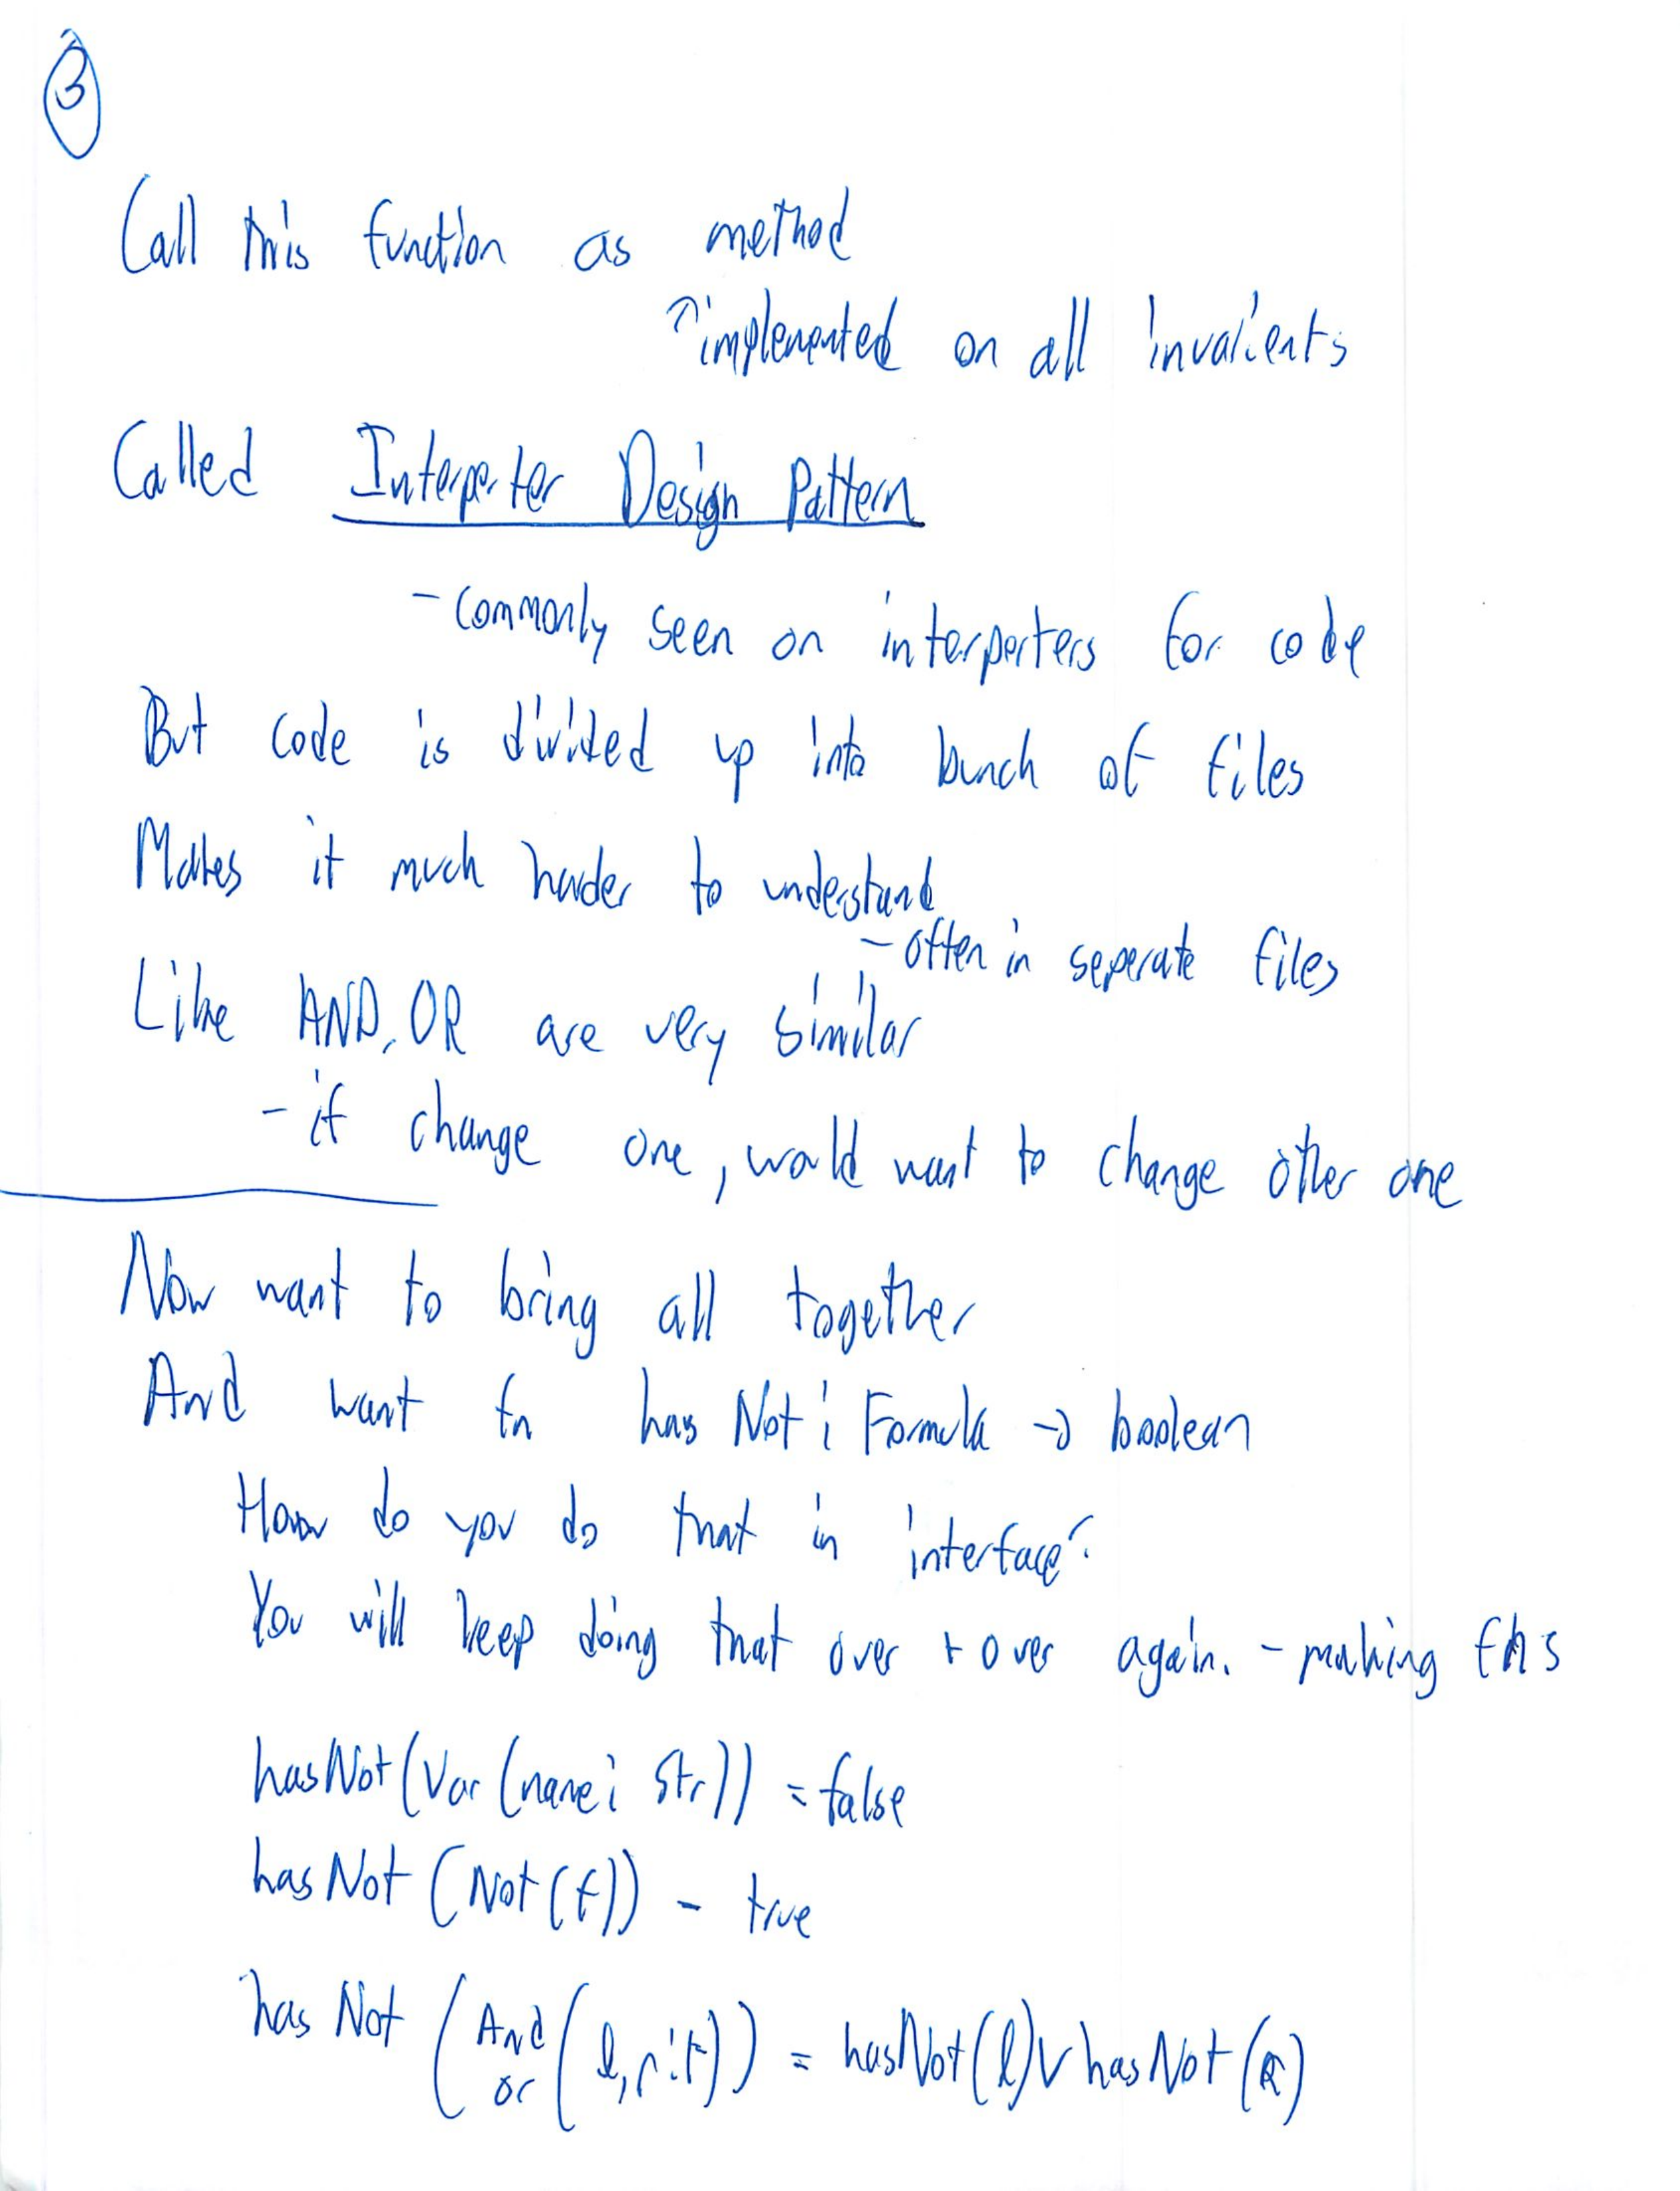 3
Call this function as method
↑implemented on all invarients
Called Interperter Design Pattern
- commonly seen on interperters for code
But code is divided up into bunch of files
Makes it much harder to understand
- often in seperate files
Like AND, OR are very similar
- if change one, would want to change other one
Now want to bring all together
And want fn hasNot: Formula → boolean
How do you do that in interface?
You will keep doing that over + over again. - making fns
hasNot(Var(name: Str)) = false
hasNot(Not(f)) - true
hasNot(And or(l,r:f)) = hasNot(l) ∨ hasNot(R)